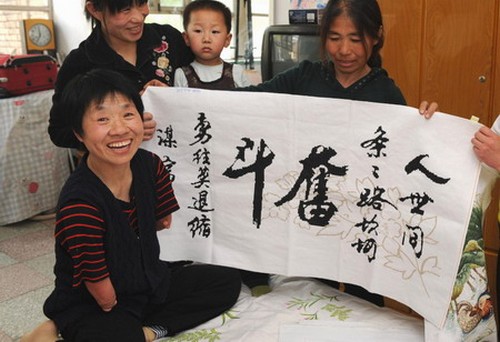 人世间
条々路坎坷
奮斗
勇往莫退缩
谋